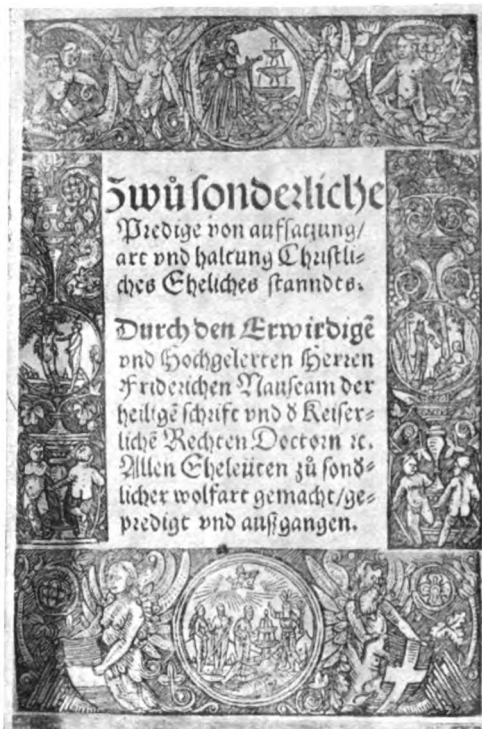 Zwů sonderliche
Predige von auffsatzung/
art vnd haltung Christli=
ches Eheliches stanndts.
Durch den Erwirdigẽ
vnd Hochgelerten Herren
Friderichen Nauseam der
heiligẽ schrift vnd d̕ Keiser=
lichẽ Rechten Doctorn ꝛc.
Allen Eheleüten zů sond=
licher wolfart gemacht/ge=
predigt vnd außgangen.